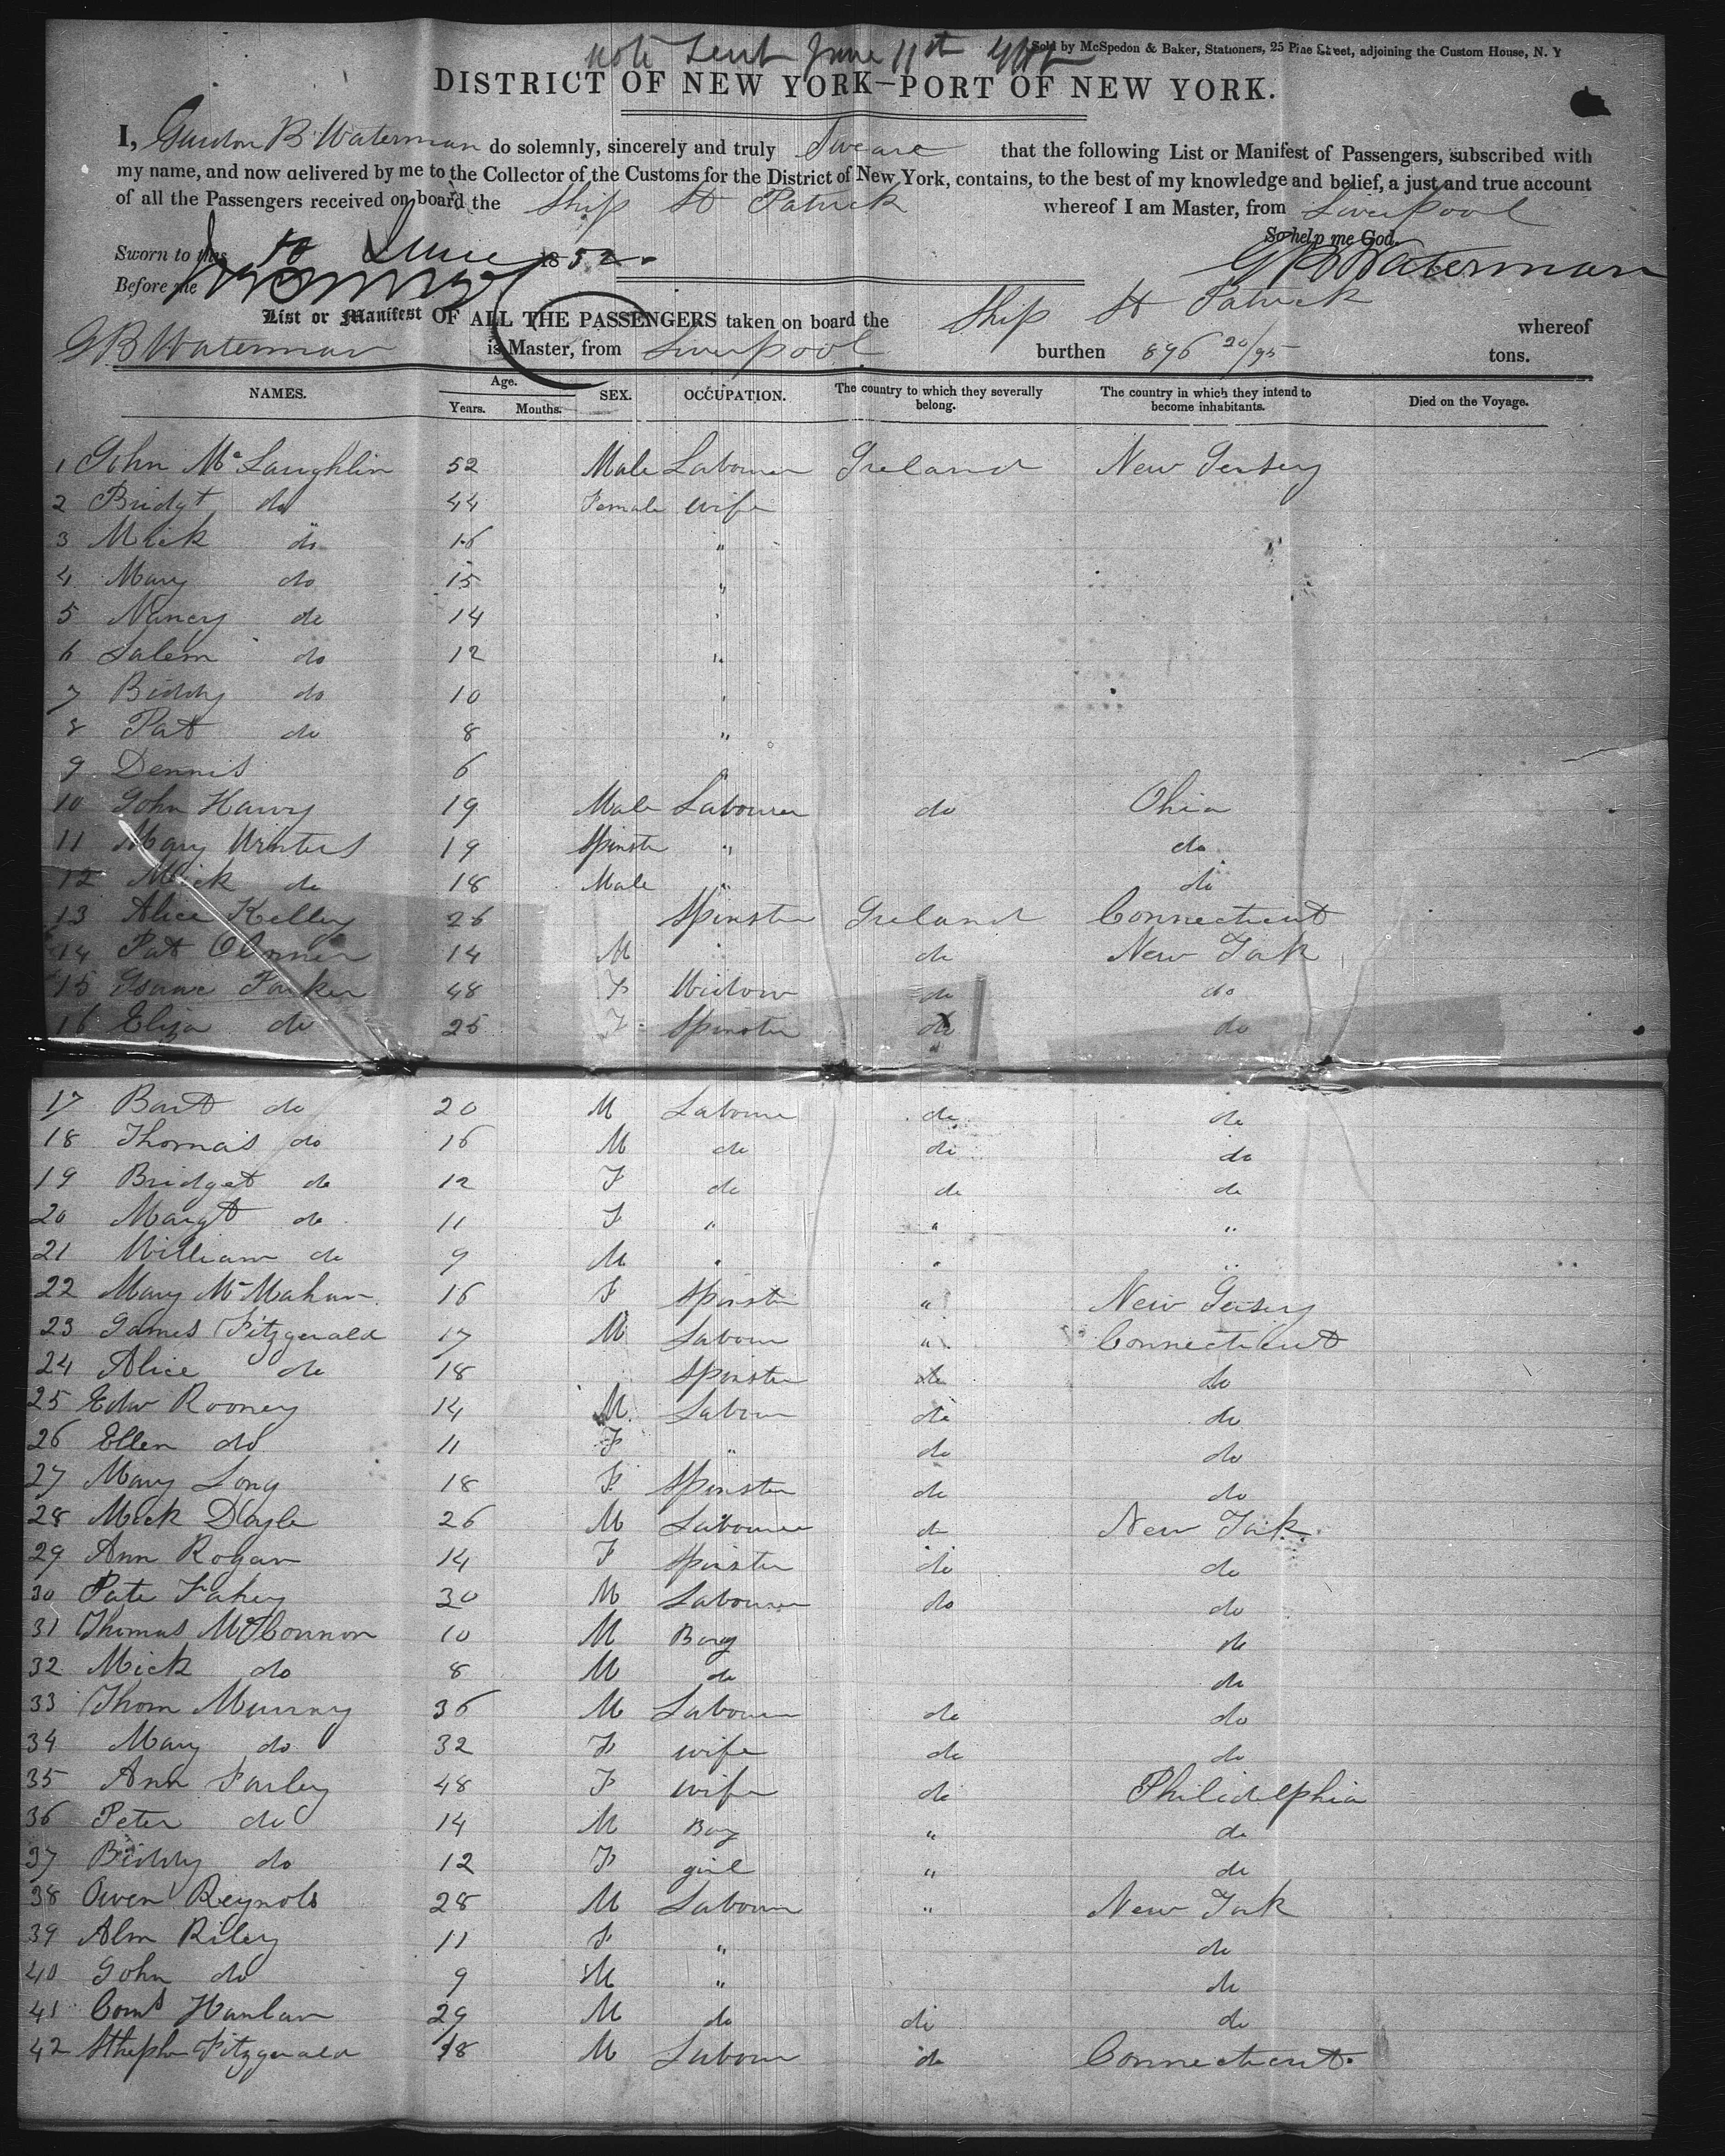 note sent June 11th
Sold by McSpedon & Baker, Stationers, 25 Pine Street, adjoining the Custom House, N. Y
DISTRICT OF NEW YORK—PORT OF NEW YORK.
I, Gurdon B Waterman do solemnly, sincerely and truly Sweare that the following List or Manifest of Passengers, subscribed with
my name, and now delivered by me to the Collector of the Customs for the District of New York, contains, to the best of my knowledge and belief, a just and true account
of all the Passengers received on board the Ship St Patrick whereof I am Master, from Liverpool
So help me God.
Sworn to this 10 June 1852. GB Waterman
Before me
List or Manifest OF ALL THE PASSENGERS taken on board the Ship St Patrick whereof
GB Waterman is Master, from Liverpool burthen 896 20/95 tons.
NAMES. Age. Years. Months. SEX. OCCUPATION. The country to which they severally belong. The country in which they intend to become inhabitants. Died on the Voyage.
1 John McLaughlin 52 Male Labourer Ireland New Jersey
2 Bridgt do 44 Female wife
3 Mick do 16 "
4 Mary do 15 "
5 Nancy do 14 "
6 Salem do 12 "
7 Biddy do 10 "
8 Pat do 8 "
9 Dennis 6 "
10 John Harvy 19 Male Labourer do Ohio
11 Mary Winters 19 Spinste " do
12 Mick do 18 Male " do
13 Alice Kelley 26 Spinster Ireland Connecticut
14 Pat 14 M do New York
15 Parker 48 F Widow do do
16 Eliza do 25 F Spinster do do
17 Bart do 20 M Laboure do do
18 Thomas do 16 M do do do
19 Bridget do 12 F do do do
20 Margt do 11 F " " "
21 William do 9 M " " "
22 Mary McMahan 16 F Spinster " New Jersey
23 James Fitzgerald 17 M Labour " Connecticut
24 Alice do 18 Spinster do do
25 Edw Rooney 14 M Labour do do
26 Ellen do 11 F " do do
27 Mary Long 18 F Spinster do do
28 Mick Doyle 26 M Labourer do New York
29 Ann Rogan 14 F Spinster do do
30 Pate Fahey 30 M Labourer do do
31 Thomas McConnon 10 M Boy do
32 Mick do 8 M do do
33 Thom Murray 36 M Labourer do do
34 Mary do 32 F wife do do
35 Ann Farley 48 F wife do Philidelphia
36 Peter do 14 M Boy " do
37 Biddy do 12 F girl " do
38 Owen Reynols 28 M Labour " New York
39 Riley 11 F " do
40 John do 9 M " do
41 Hanlan 29 M do do do
42 Sthephn Fitzgerald 18 M Labour do Connecticut.